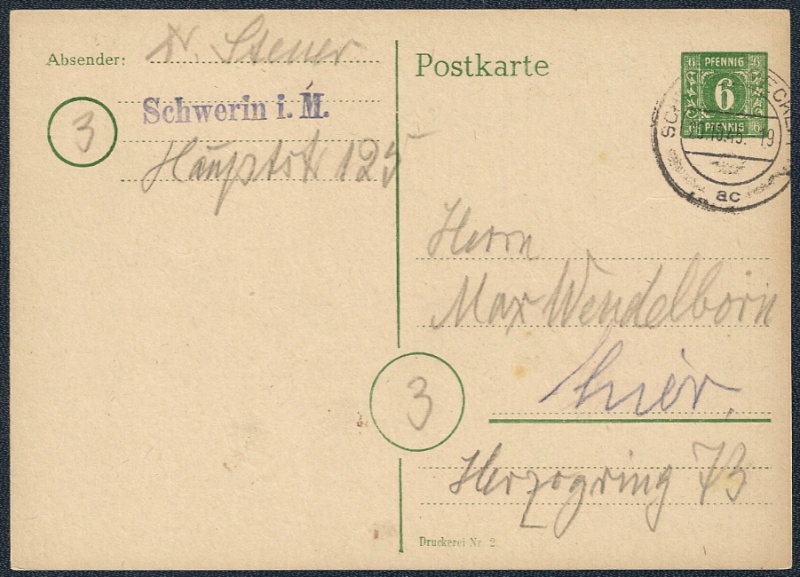 Absender: Dr. Stener
3 Schwerin i. M.
Hauptstr 125
Postkarte
PFENNIG
6
PFENNIG
19
ac
Herrn
Max Wendelborn
3
hier,
Herzogring 73
Druckerei Nr. 2.